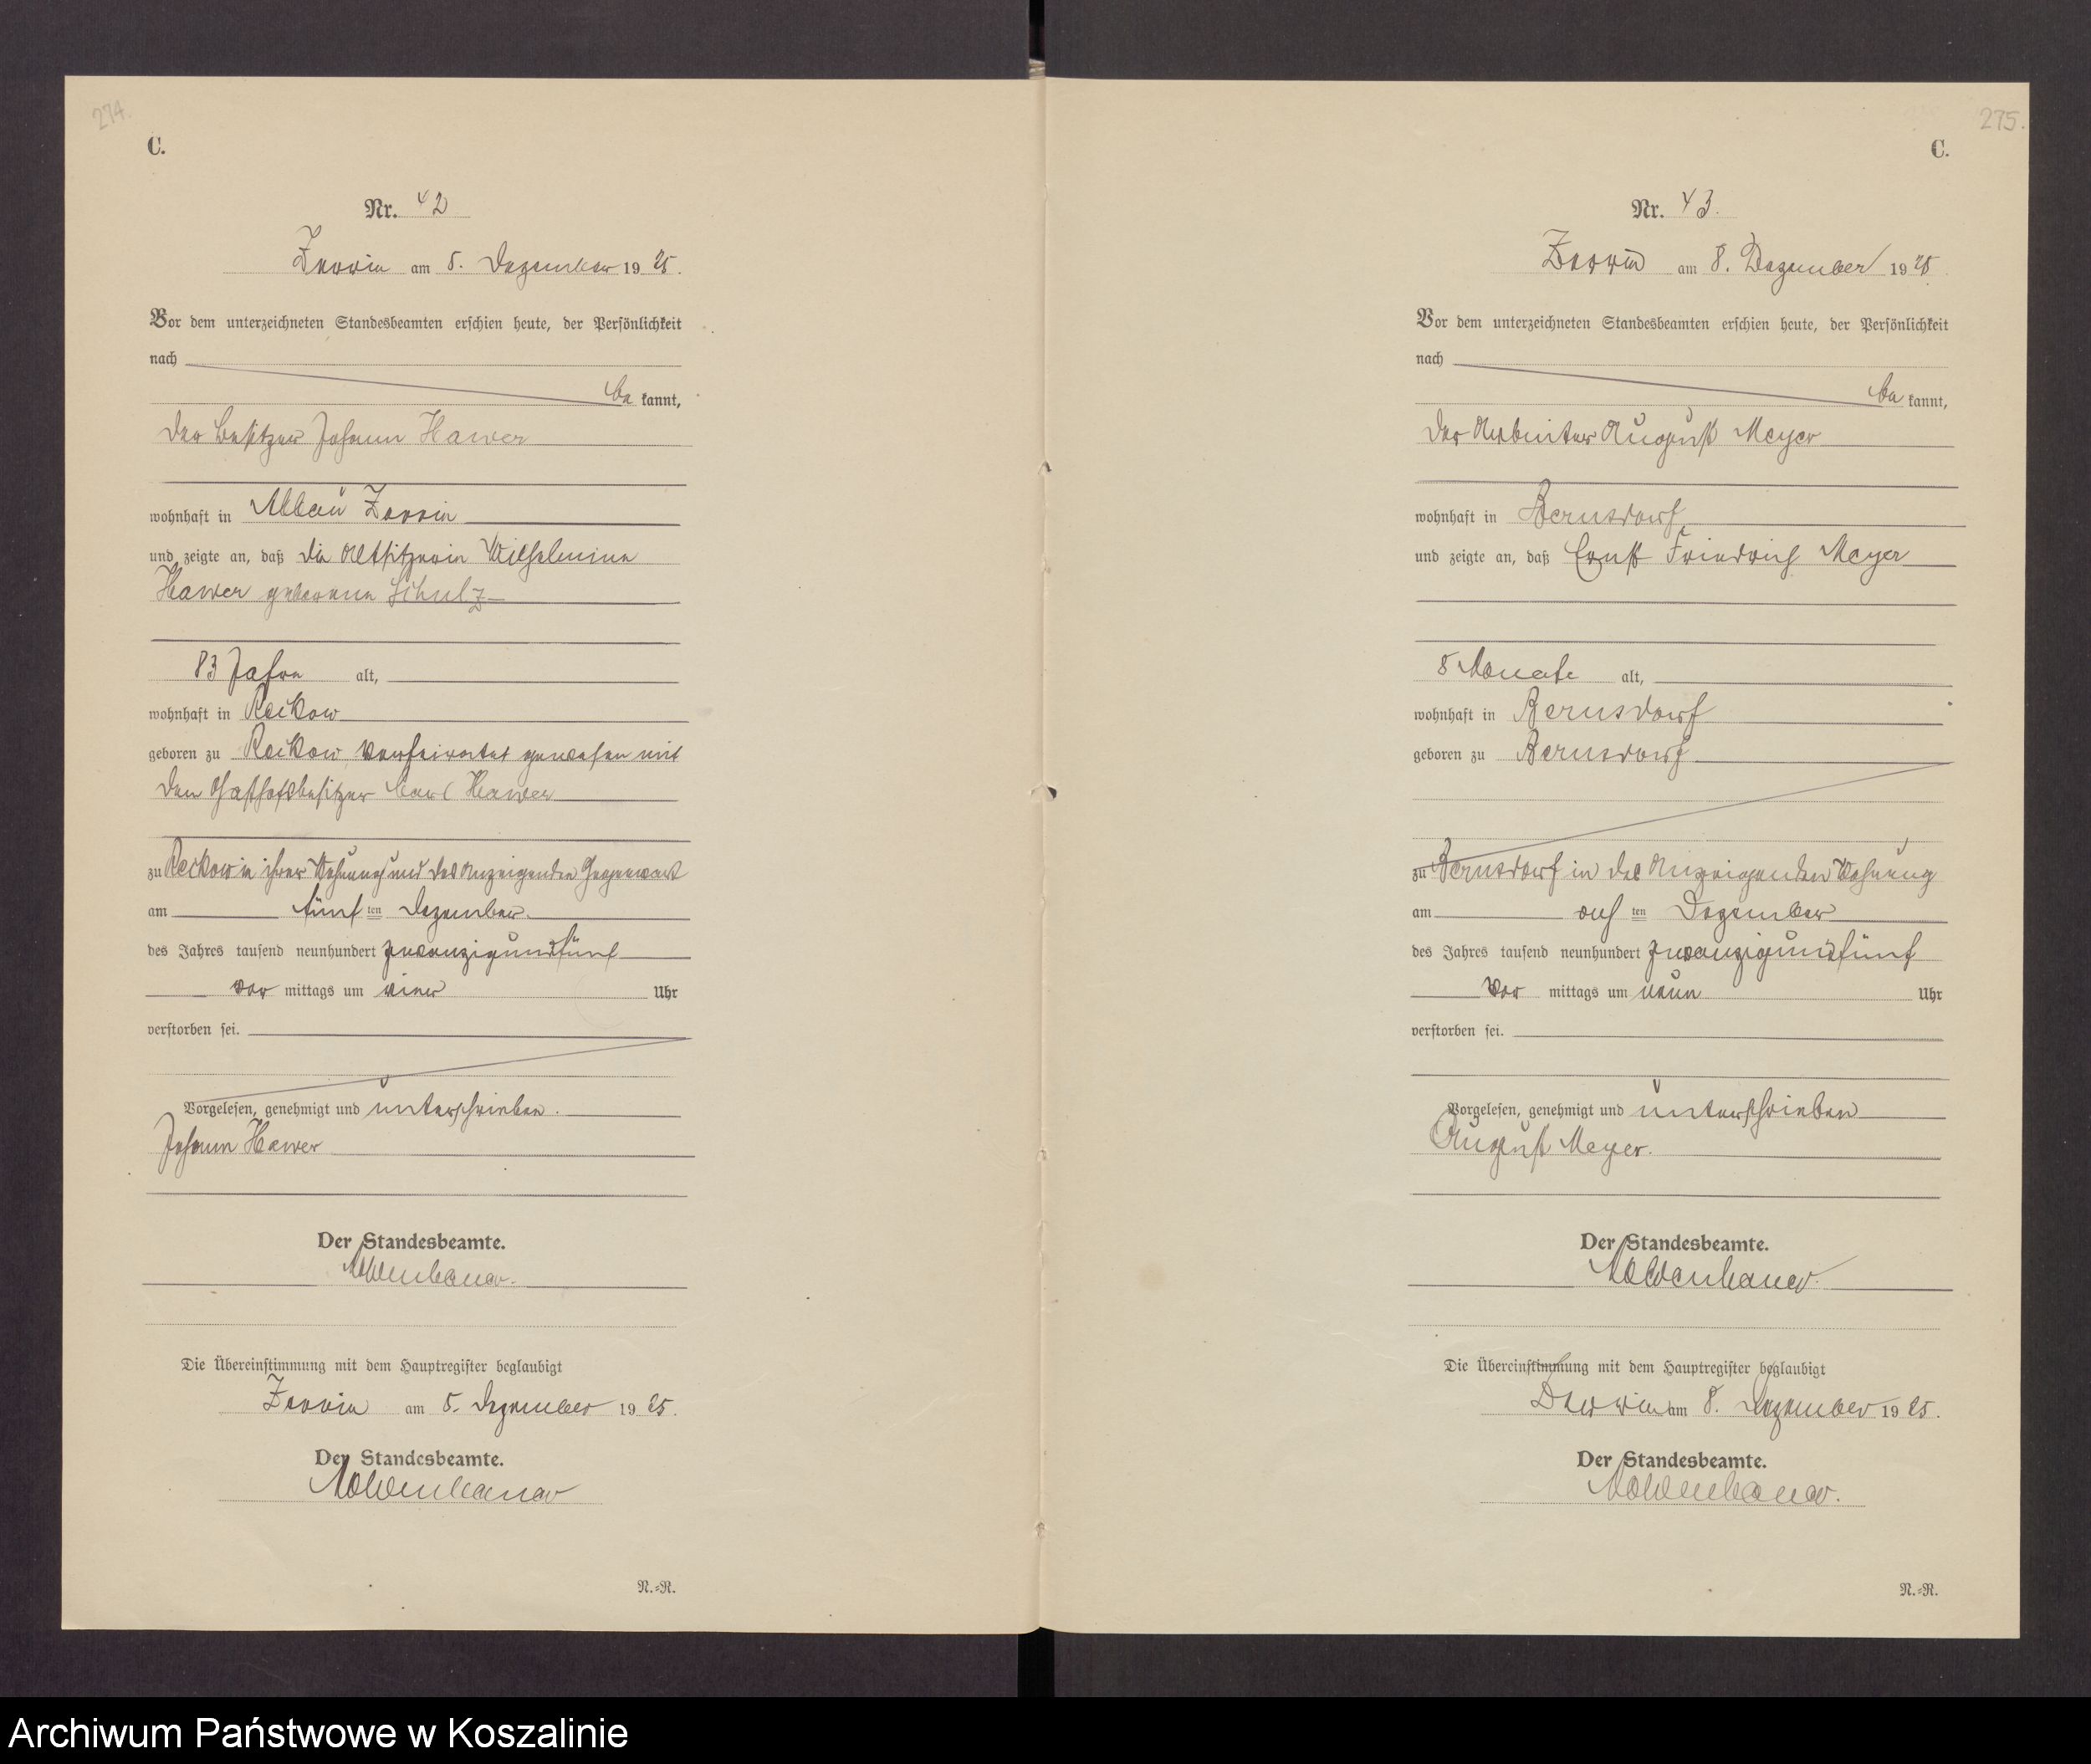 274.
C.
Nr. 42
Zerrin am 5. Dezember 1925.
Vor dem unterzeichneten Standesbeamten erschien heute, der Persönlichkeit
nach
be kannt,
der Besitzer Johann Hawer
wohnhaft in Abbau Zerrin
und zeigte an, daß die Altsitzerin Wilhelmine
Hawer geborene Schulz
83 Jahre alt,
wohnhaft in Reckow
geboren zu Reckow, verheiratet gewesen mit
dem Gasthofsbesitzer Carl Hawer
zu Reckow in ihrer Wohnung und des Anzeigenden Gegenwart
am fünf ten Dezember
des Jahres tausend neunhundert zwanzigundfünf
vor mittags um einer Uhr
verstorben sei.
Vorgelesen, genehmigt und unterschrieben.
Johann Hawer
Der Standesbeamte.
Moldenhauer.
Die Übereinstimmung mit dem Hauptregister beglaubigt
Zerrin am 5. Dezember 1925.
Der Standesbeamte.
Moldenhauer
N.=R.
275.
C.
Nr. 43.
Zerrin am 8. Dezember 1925
Vor dem unterzeichneten Standesbeamten erschien heute, der Persönlichkeit
nach
be kannt,
der Arbeiter August Meyer
wohnhaft in Bernsdorf,
und zeigte an, daß Ernst Friedrich Meyer
8 Monate alt,
wohnhaft in Bernsdorf
geboren zu Bernsdorf
zu Bernsdorf in des Anzeigenden Wohnung
am ten Dezember
des Jahres tausend neunhundert zwanzigundfünf
vor mittags um neun Uhr
verstorben sei.
Vorgelesen, genehmigt und unterschrieben
August Meyer.
Der Standesbeamte.
Moldenhauer.
Die Übereinstimmung mit dem Hauptregister beglaubigt
Zerrin am 8. Dezember 1925.
Der Standesbeamte.
Moldenhauer.
N.=R.
Archiwum Państwowe w Koszalinie